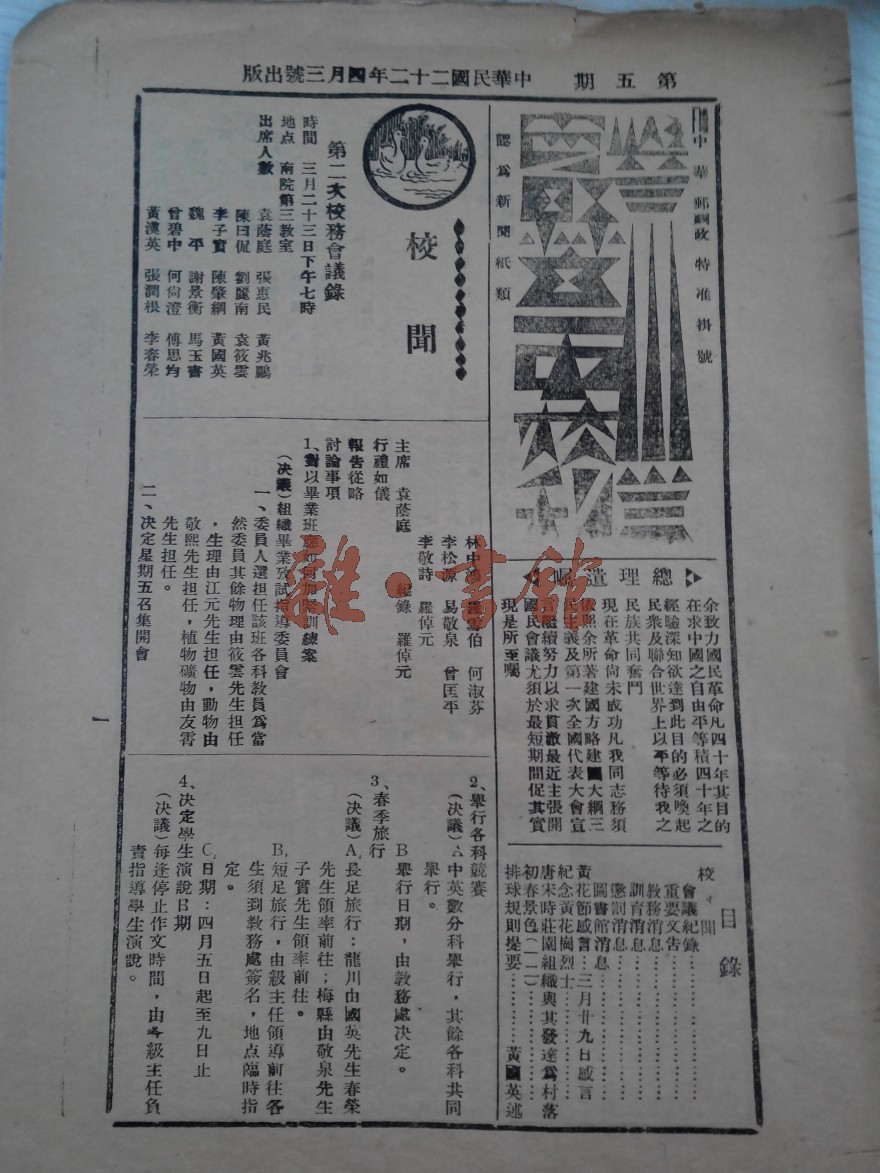 第五期　中華民國二十二年四月三號出版
中華郵政特准掛號
認爲新聞紙類
總理遺囑
余致力國民革命凡四十年其目的
在求中國之自由平等積四十年之
經驗深知欲達到此目的必須喚起
民衆及聯合世界上以平等待我之
民族共同奮鬥
現在革命尚未成功凡我同志務須
依照余所著建國方略建國大綱三
民主義及第一次全國代表大會宣
言繼續努力以求貫澈最近主張開
國民會議尤須於最短期間促其實
現是所至囑
目錄
校聞
會議紀錄
重要文告
教務消息
訓育消息
懲制消息
圖書館消息
黃花節感言…三月廿九日感言
紀念黃花崗烈士
唐宋時莊園組織與其發達爲村落
初春景色(一二)
排球規則提要……黃國英述
校聞
第二次校務會議錄
時間　三月二十三日下午七時
地点　南院第三教室
出席人數　袁蔭庭　張惠民　黃兆鵬
陳日侃　劉麗南　袁筱雲
李子實　陳肇綱　黃國英
魏平　謝景衡　馬玉書
曾碧中　何尙澄　傅思均
黃漢英　張潤根　李春榮
林中　伯　何淑芬
李松源　易敬泉　曾匡平
李敬詩　羅倬元
主席　袁蔭庭　紀錄　羅倬元
行禮如儀
報告從略
討論事項
1、對以畢業班應如何加緊訓練案
（决議）組織畢業攷試指導委員會
一、委員人選担任該班各科教員爲當
然委員其餘物理由筱雲先生担任
，生理由江元先生担任，動物由
敬熙先生担任，植物礦物由友霄
先生担任。
二、决定星期五召集開會
2、舉行各科競賽
（决議）A 中英數分科舉行，其餘各科共同
舉行。
B 舉行日期，由教務處决定。
3、春季旅行
（决議）A，長足旅行：龍川由國英先生春榮
先生領率前往；梅縣由敬泉先生
子實先生領率前往。
B，短足旅行，由級主任領導前往各
生須到教務處簽名，地点臨時指
定。
C，日期：四月五日起至九日止
4、决定學生演說日期
（决議）每逢停止作文時間，由各級主任負
責指導學生演說。
一
雜·書館